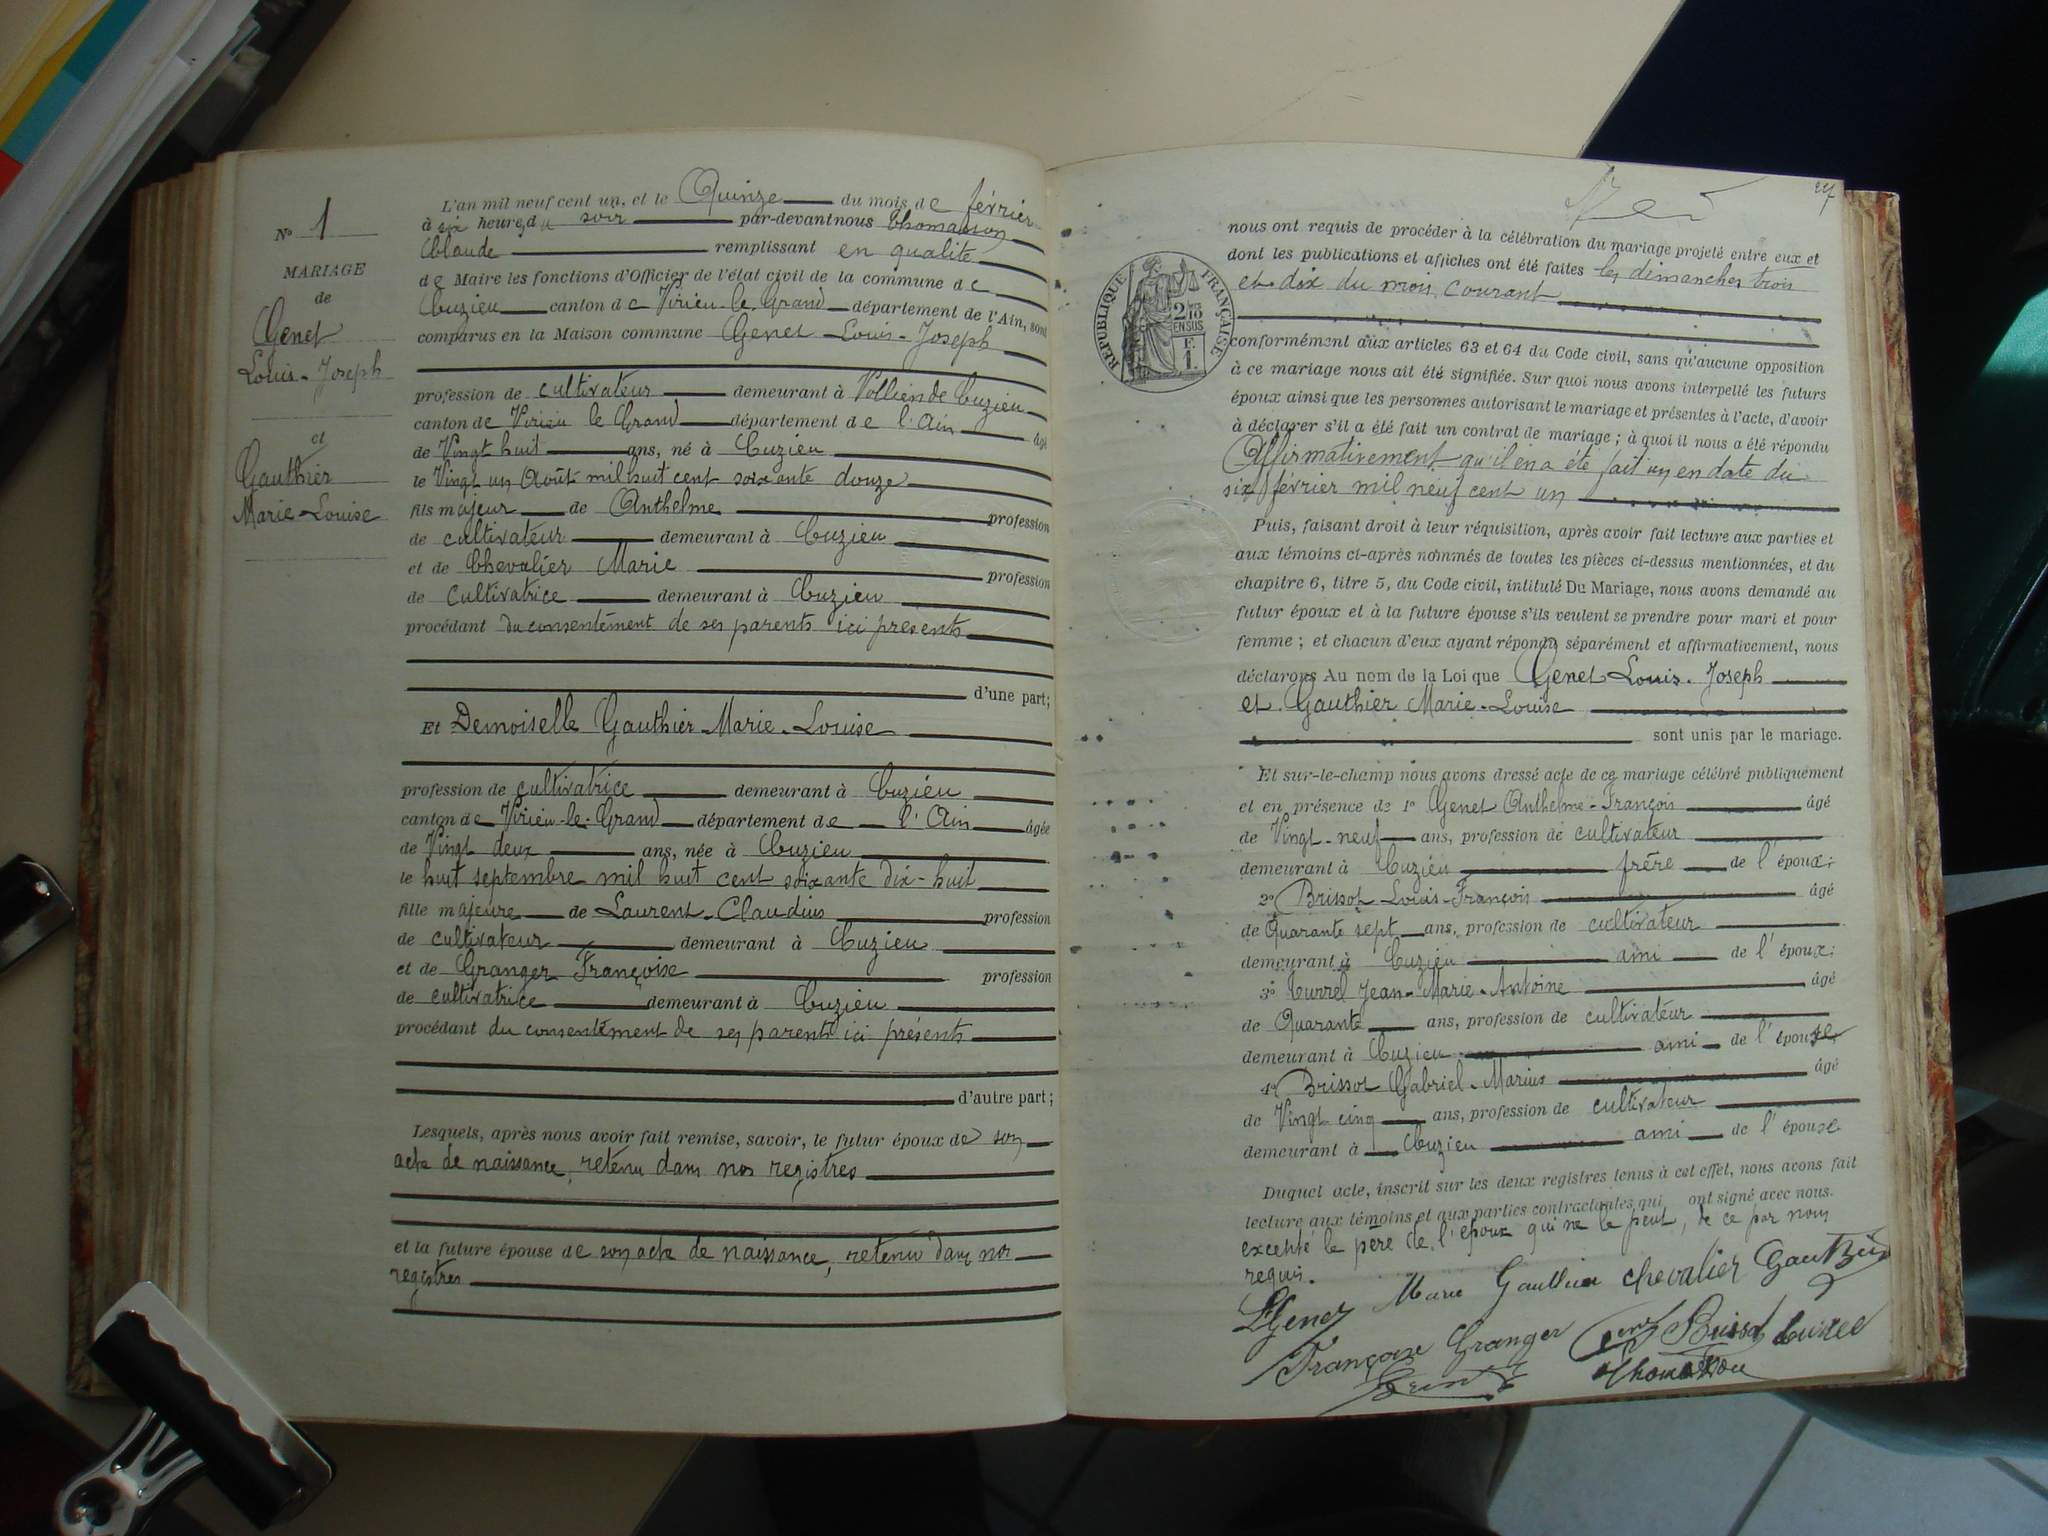 N° 1
MARIAGE
de
Genet
Louis-Joseph
et
Gauthier
Marie-Louise
L'an mil neuf cent un, et le Quinze du mois de février
à six heures du soir par-devant nous Thomasson
Claude remplissant en qualité
de Maire les fonctions d'Officier de l'état civil de la commune de
Cuzieu canton de Virieu-le-Grand département de l'Ain, sont
comparus en la Maison commune Genet Louis-Joseph
profession de cultivateur demeurant à Vollien de Cuzieu
canton de Virieu le Grand département de l'Ain âgé
de Vingt huit ans, né à Cuzieu
le Vingt un Août mil huit cent soixante douze
fils majeur de Anthelme profession
de cultivateur demeurant à Cuzieu
et de Chevalier Marie profession
de cultivatrice demeurant à Cuzieu
procédant du consentement de ses parents ici présents
d'une part;
Et Demoiselle Gauthier Marie-Louise
profession de cultivatrice demeurant à Cuzieu
canton de Virieu-le-Grand département de l'Ain âgée
de Vingt deux ans, née à Cuzieu
le huit septembre mil huit cent soixante dix-huit
fille majeure de Laurent-Claudius profession
de cultivateur demeurant à Cuzieu
et de Granger Françoise profession
de cultivatrice demeurant à Cuzieu
procédant du consentement de ses parents ici présents
d'autre part;
Lesquels, après nous avoir fait remise, savoir, le futur époux de son
acte de naissance, retenu dans nos registres
et la future épouse de son acte de naissance, retenu dans nos
registres
RÉPUBLIQUE FRANÇAISE
2/10
EN SUS
F.
1.
nous ont requis de procéder à la célébration du mariage projeté entre eux et
dont les publications et affiches ont été faites les dimanches trois
et dix du mois courant
conformément aux articles 63 et 64 du Code civil, sans qu'aucune opposition
à ce mariage nous ait été signifiée. Sur quoi nous avons interpellé les futurs
époux ainsi que les personnes autorisant le mariage et présentes à l'acte, d'avoir
à déclarer s'il a été fait un contrat de mariage; à quoi il nous a été répondu
Affirmativement qu'il en a été fait un en date du
six février mil neuf cent un
Puis, faisant droit à leur réquisition, après avoir fait lecture aux parties et
aux témoins ci-après nommés de toutes les pièces ci-dessus mentionnées, et du
chapitre 6, titre 5, du Code civil, intitulé Du Mariage, nous avons demandé au
futur époux et à la future épouse s'ils veulent se prendre pour mari et pour
femme; et chacun d'eux ayant répondu séparément et affirmativement, nous
déclarons Au nom de la Loi que Genet Louis-Joseph
et Gauthier Marie-Louise
sont unis par le mariage.
Et sur-le-champ nous avons dressé acte de ce mariage célébré publiquement
et en présence de 1° Genet Anthelme-François âgé
de Vingt-neuf ans, profession de cultivateur
demeurant à Cuzieu frère de l'époux;
2° Brissot Louis-François âgé
de Quarante sept ans, profession de cultivateur
demeurant à Cuzieu ami de l'époux;
3° Currel Jean-Marie-Antoine âgé
de Quarante ans, profession de cultivateur
demeurant à Cuzieu ami de l'épouse
4° Brissot Gabriel-Marius âgé
de Vingt cinq ans, profession de cultivateur
demeurant à Cuzieu ami de l'épouse
Duquel acte, inscrit sur les deux registres tenus à cet effet, nous avons fait
lecture aux témoins et aux parties contractantes qui ont signé avec nous.
excepté le père de l'époux qui ne le peut, de ce par nous
requis.
LGenet Marie Gauthier chevalier Gauthier
Françoise Granger Genet Brissot Currel
Thomasson